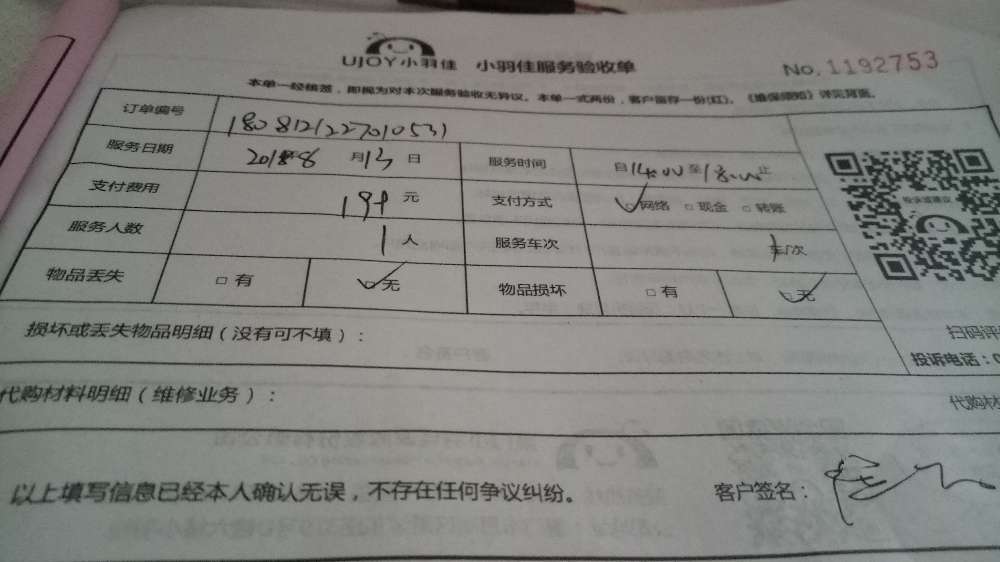 UJOY小羽佳 小羽佳服务验收单
No. 1192753
本单一经核签，即视为对本次服务验收无异议。本单一式两份，客户留存一份(红)。《维保须知》详见背面。
订单编号 180812122701053
服务日期 2018 8 月 13 日 服务时间 自 14:00 至 18:00 止
支付费用 元 支付方式 网络 □ 现金 □ 转账
服务人数 1 人 服务车次 车/次
物品丢失 □ 有 □ 无 物品损坏 □ 有 □ 无
投诉或建议
损坏或丢失物品明细（没有可不填）：
扫码评
投诉电话：0
代购材料明细（维修业务）：
代购材
以上填写信息已经本人确认无误，不存在任何争议纠纷。 客户签名：